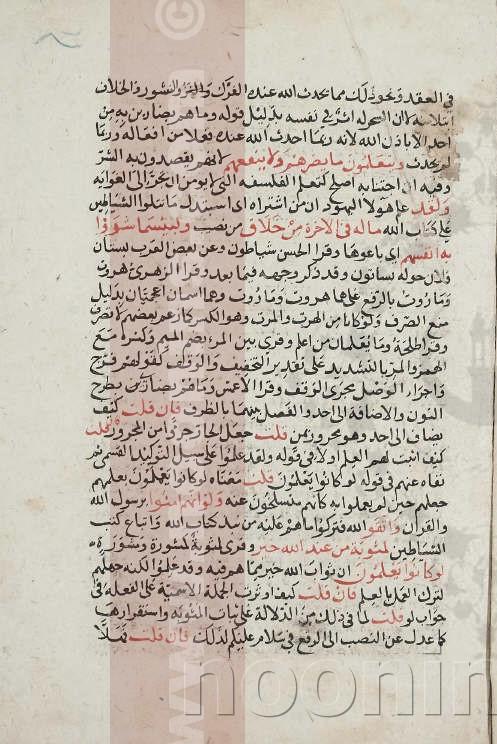 في العقد ونحو ذلك مما يحدث الله عنده الفرك والنشوز والخلاف
ابتلاء منه لا ان السحر له اثر في نفسه بدليل قوله وما هم بضارين به من
احد الا باذن الله لانه ربما احدث الله عنده فعلا من افعاله وربما
لم يحدث ويتعلمون ما يضرهم ولا ينفعهم لانهم يقصدون به الشر
وفيه ان اجتنابه اصلح كتعلم الفلسفه التي لا يومن ان تجر الى الغوايه
ولقد علم هولا اليهود ان من اشتراه اى استبدل ما تتلوا الشياطين
على كتاب الله ماله في الاخرة من خلاق من نصيب ولبئسما شروا
به انفسهم اى باعوها وقرا الحسن الشياطون وعن بعض العرب بستان
فلان حوله بساتون وقد ذكر وجهه فيما بعد وقرا الزهرى هاروت
وماروت بالرفع على هما هروت وماروت وهما اسمان اعجميان بدليل
منع الصرف ولو كانا من الهرت والمرت وهو الكسر كما زعم بعضهم لانصرفا
وقرا طلحة وما يعلمان من اعلم وقرى بين المرء بضم الميم وكسرها مع
الهمز والمر بالتشديد على تقدير التخفيف والوقف كقولهم فرج
واجراء الوصل مجرى الوقف وقرا الاعمش وما هم بضارى بطرح
النون والاضافة الى احد والفصل بينهما بالظرف فان قلت كيف
يضاف الى احد وهو مجرور بمن قلت جعل الجار جزوا من المجرور فان قلت
كيف اثبت لهم العلم اولا في قوله ولقد علموا على سبيل التوكيد القسمى ثم
نفاه عنهم في قوله لو كانوا يعلمون قلت معناه لو كانوا يعملون بعلمهم
جعلهم حين لم يعملوا به كانهم منسلخون عنه ولو انهم امنوا برسول الله
والقران واتقوا الله فتركوا ما هم عليه من نبذ كتاب الله واتباع كتب
الشياطين لمثوبة من عند الله خير وقرى لمثوبة كمشورة ومشورة
لو كانوا يعلمون ان ثواب الله خير مما هم فيه وقد علموا لكنه جهلهم
لترك العمل بالعلم فان قلت كيف اوثرت الجملة الاسمية على الفعليه في
جواب لو قلت لما في ذلك من الدلالة على ثبات المثوبه واستقرارها
كما عدل عن النصب الى الرفع في سلام عليكم لذلك فان قلت فهلا
noonin